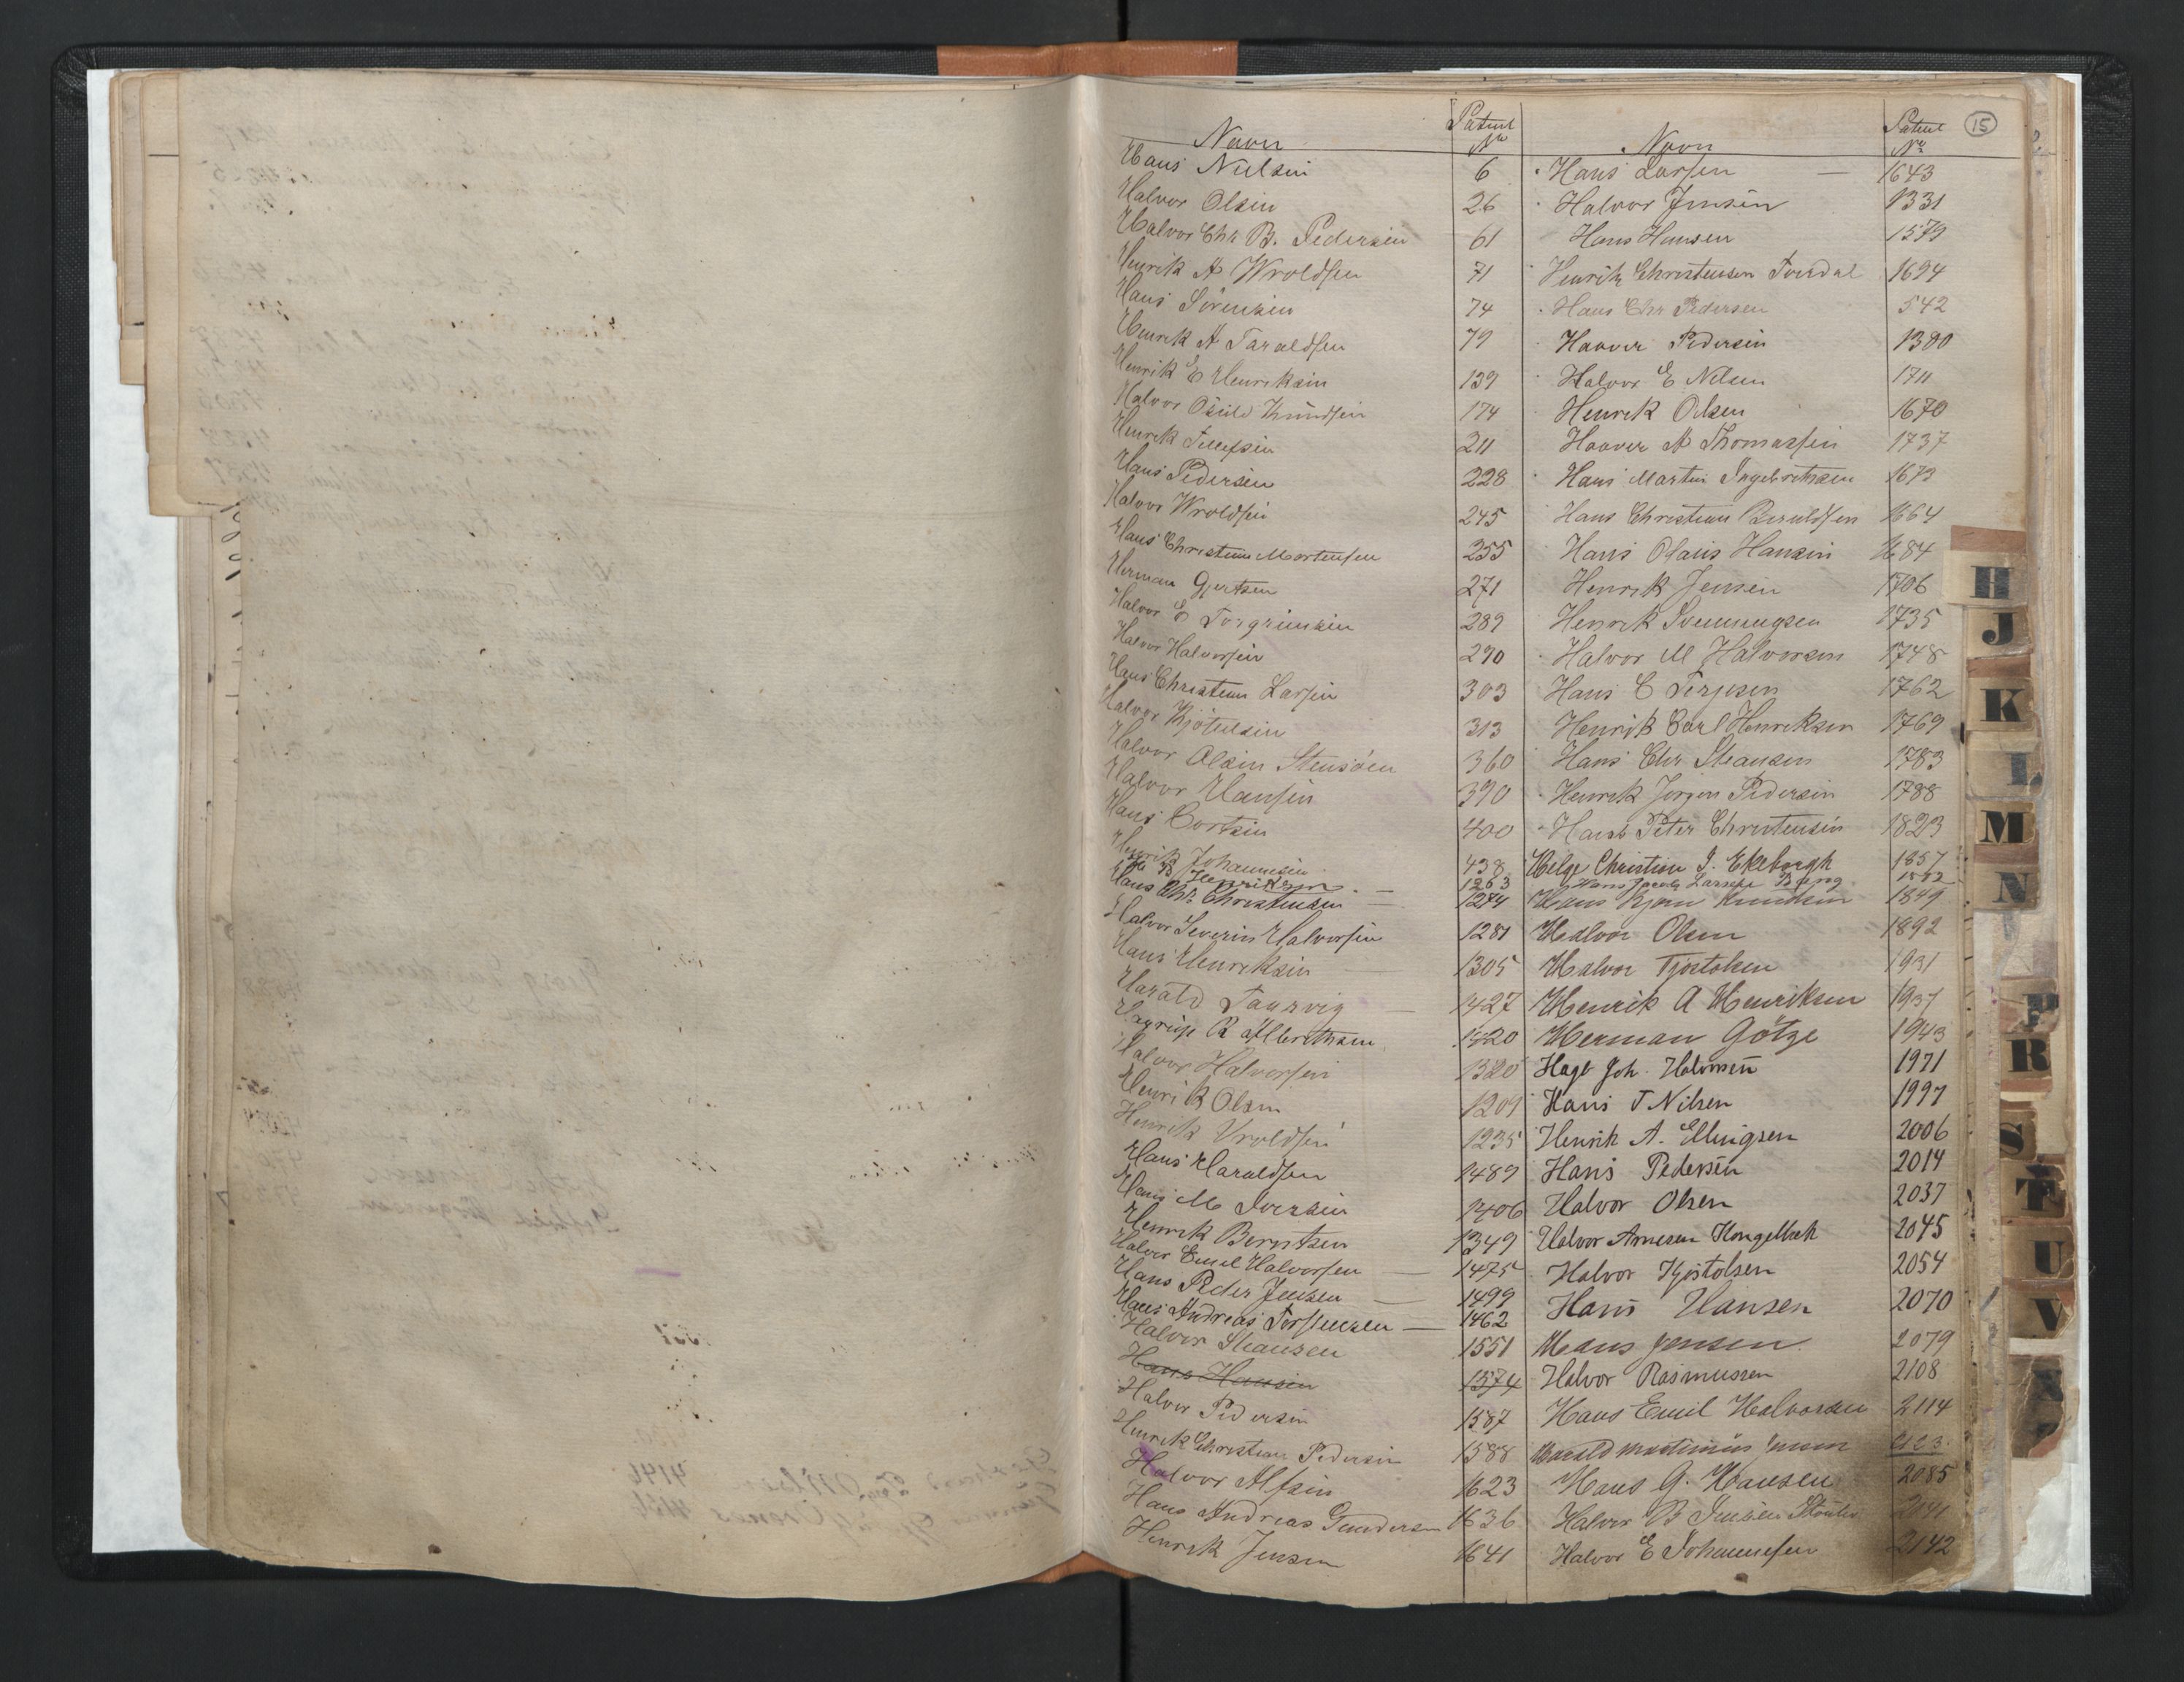 15
Navn
Patent
No
Hans Nielsen 6
Halvor Olsen 26
Halvor Chr B. Pedersen 61
Henrik A Wroldsen 71
Hans Sörensen 74
Henrik A Taraldsen 79
Henrik E Henriksen 139
Halvor Knudsen 174
Henrik Tellefsen 211
Hans Pedersen 228
Halvor Wroldsen 245
Hans Christian Mortensen 255
Herman Gjertsen 271
Halvor E Torgrimsen 289
Halvor Halvorsen 290
Hans Christian Larsen 303
Halvor Kjötulsen 313
Halvor Olsen 360
Halvor Hansen 390
Hans 400
Henrik Johannesen 438
Henriksen 1263
Hans Chr Christensen 1274
Halvor Severin Halvorsen 1281
Hans Henriksen 1305
Harald Taurvig 1427
Albretsen 1420
Halvor Halvorsen 1320
Henrik Olsen 1209
Henrik Vroldsen 1235
Hans Haraldsen 1489
Hans M Iversen 1406
Henrik Berntsen 1349
Halvor Emil Halvorsen 1475
Hans Peder Jensen 1499
Hans Andreas Torstensen 1462
Halvor Steansen 1551
Hans Hansen 1574
Halvor Pedersen 1587
Henrik Christian Pedersen 1588
Halvor Alfsen 1623
Hans Andreas Gundersen 1636
Henrik Jensen 1641
Navn
Patent
No
Hans Larsen 1643
Halvor Jensen 1331
Hans Hansen 1579
Henrik Christensen 1694
Hans Chr Pedersen 542
Haaver Pedersen 1380
Halvor E Nelsen 1711
Henrik Olsen 1670
Haaver A Thomassen 1737
Hans Martin Ingebretsen 1673
Hans Christian Beruldsen 1664
Hans Olaus Hansen 1684
Henrik Jensen 1706
Henrik Svenningsen 1735
Halvor M Halvorsen 1748
Hans C Terjesen 1762
Henrik Carl Henriksen 1769
Hans Chr Steansen 1783
Henrik Jörgen Pedersen 1788
Hans Peter Christensen 1823
Helge Christian J. Ekeborgh 1857
Hans Jacob Larsen Bang
Hans Bjorn Knudsen 1849
Halvor Olsen 1892
Halvor Tjostolsen 1931
Henrik A Henriksen 1937
Herman Götze 1943
Hage Joh. Halvorsen 1971
Hans T Nilsen 1997
Henrik A. Ellingsen 2006
Hans Pedersen 2014
Halvor Olsen 2037
Halvor Arnesen Kongelbek 2045
Halvor Kjostolsen 2054
Hans Hansen 2070
Hans Jensen 2079
Halvor Rasmussen 2108
Hans Emil Halvorsen 2114
Harald Martinius Jensen 2123
Hans G. Hansen 2085
Halvor B Jensen 2141
Halvor E Johannesen 2142
H
J
K
L
M
N
P
R
S
T
U
V